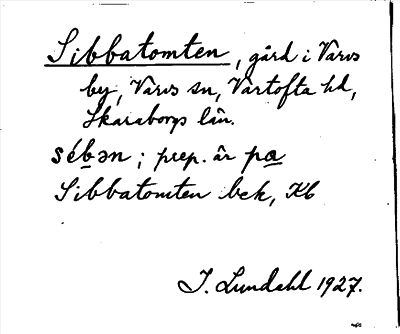 Sibbatomten, gård i Varvs
by, Varvs sn, Vartofta hd,
Skaraborgs län.
sébən; prep. är pa
Sibbatomten bek, Kb
I. Lundahl 1927.